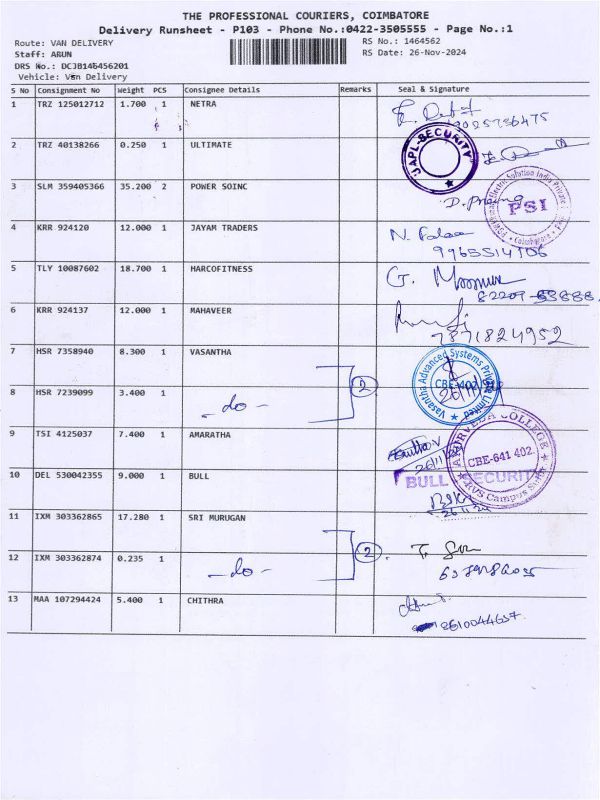 THE PROFESSIONAL COURIERS, COIMBATORE
Delivery Runsheet - P103 - Phone No.:0422-3505555 - Page No.:1
Route: VAN DELIVERY RS No.: 1464562
Staff: ARUN RS Date: 26-Nov-2024
DRS No.: DCJB146456201
Vehicle: Van Delivery
S No Consignment No Weight PCS Consignee Details Remarks Seal & Signature
1 TRZ 125012712 1.700 1 NETRA
2 TRZ 40138266 0.250 1 ULTIMATE
JAPL-SECURITY
3 SLM 359405366 35.200 2 POWER SOINC
PSI
Coimbatore
4 KRR 924120 12.000 1 JAYAM TRADERS
9965514106
5 TLY 10087602 18.700 1 HARCOFITNESS
6 KRR 924137 12.000 1 MAHAVEER
7871824952
7 HSR 7358940 8.300 1 VASANTHA
Vasantha Advanced Systems Private Limited
8 HSR 7239099 3.400 1 -do- 2
9 TSI 4125037 7.400 1 AMARATHA
AYURVEDA COLLEGE
CBE-641 402
RVS Campus Sulur
10 DEL 530042355 9.000 1 BULL
BULL SECURITY
11 IXM 303362865 17.280 1 SRI MURUGAN
12 IXM 303362874 0.235 1 -do- 2
13 MAA 107294424 5.400 1 CHITHRA